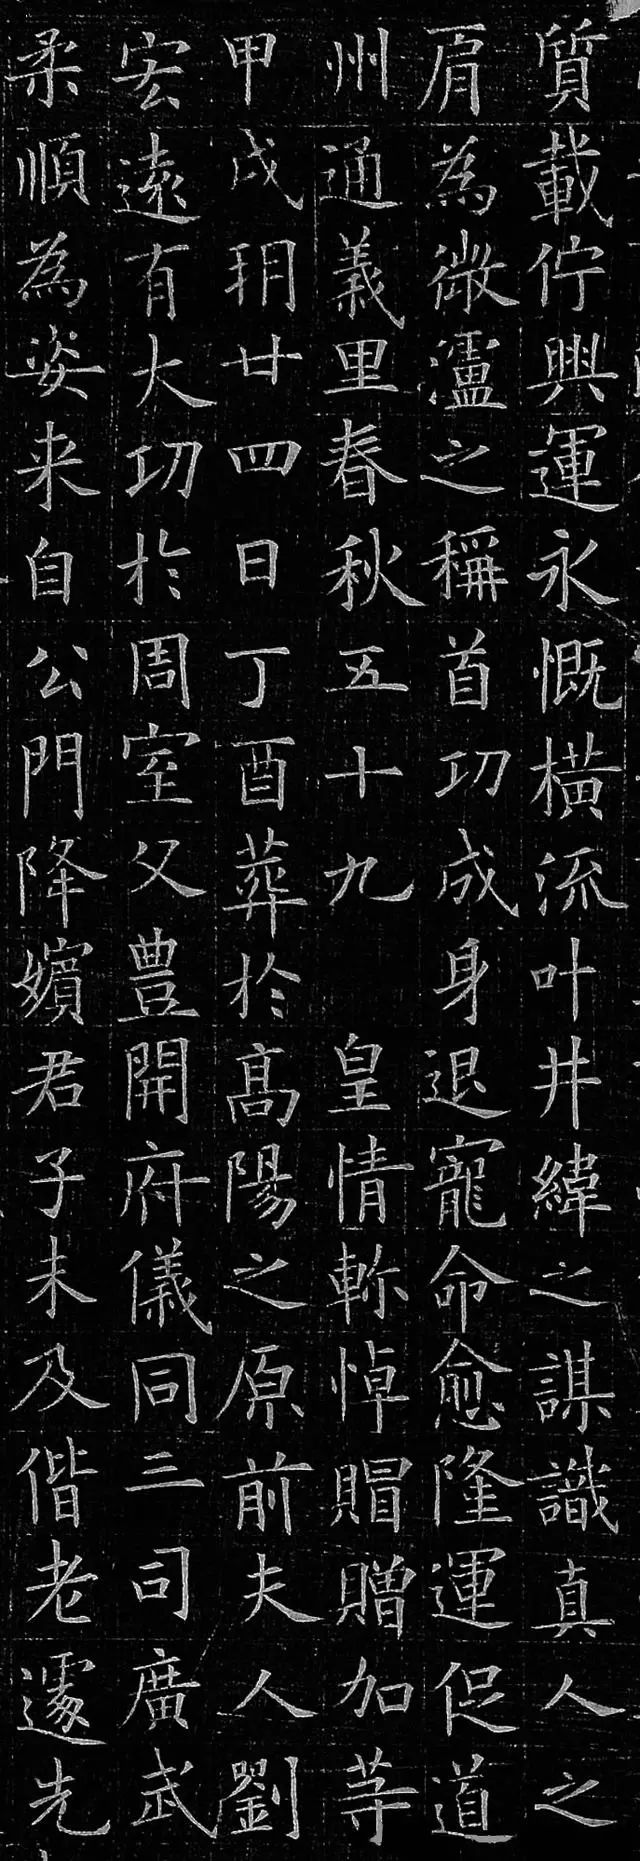 質載佇興運永慨橫流叶井緯之謀識真人之
膺為微瀘之稱首功成身退寵命愈隆運促道
州通義里春秋五十九 皇情軫悼賵贈加等
甲戌玥廿四日丁酉葬於高陽之原前夫人劉
宏遠有大功於周室父豊開府儀同三司廣武
柔順為姿来自公門降嬪君子未及偕老遽先